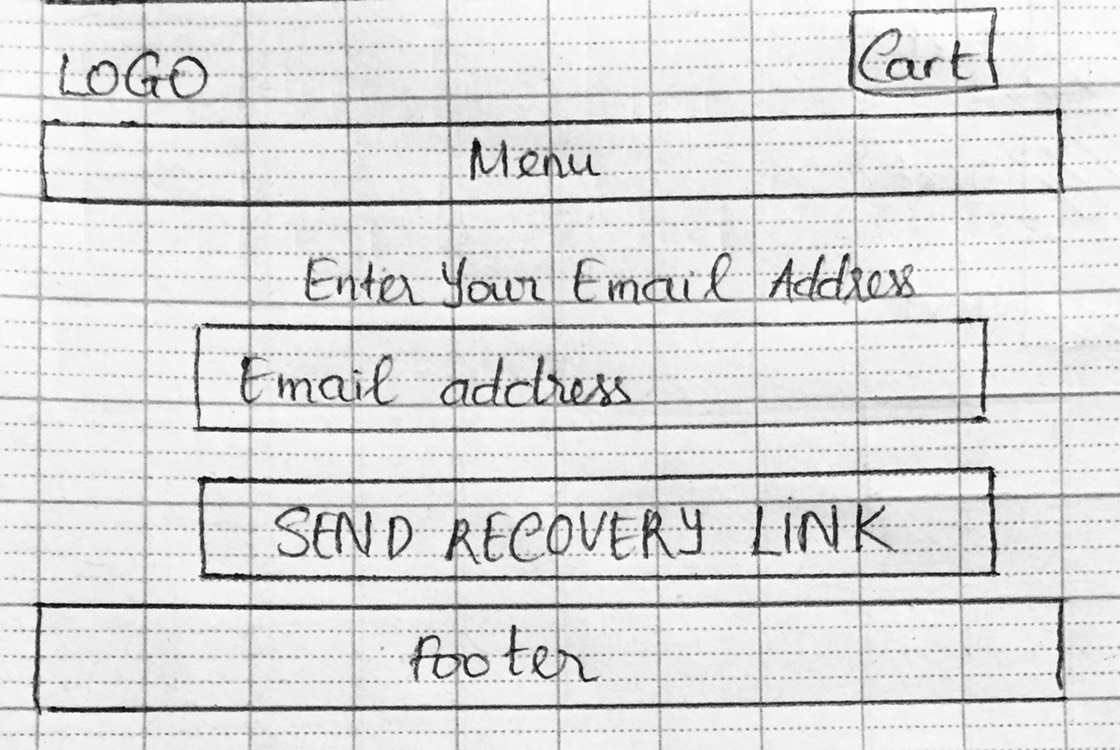 LOGO
Cart
Menu
Enter Your Email Address
Email address
SEND RECOVERY LINK
footer